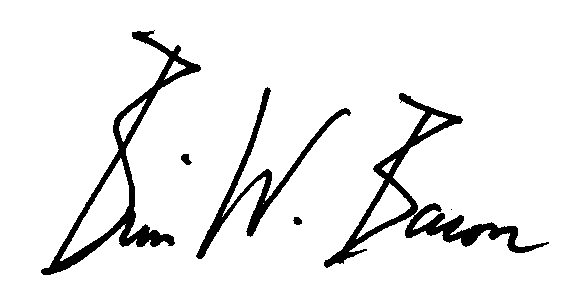 Brian W. Bacon